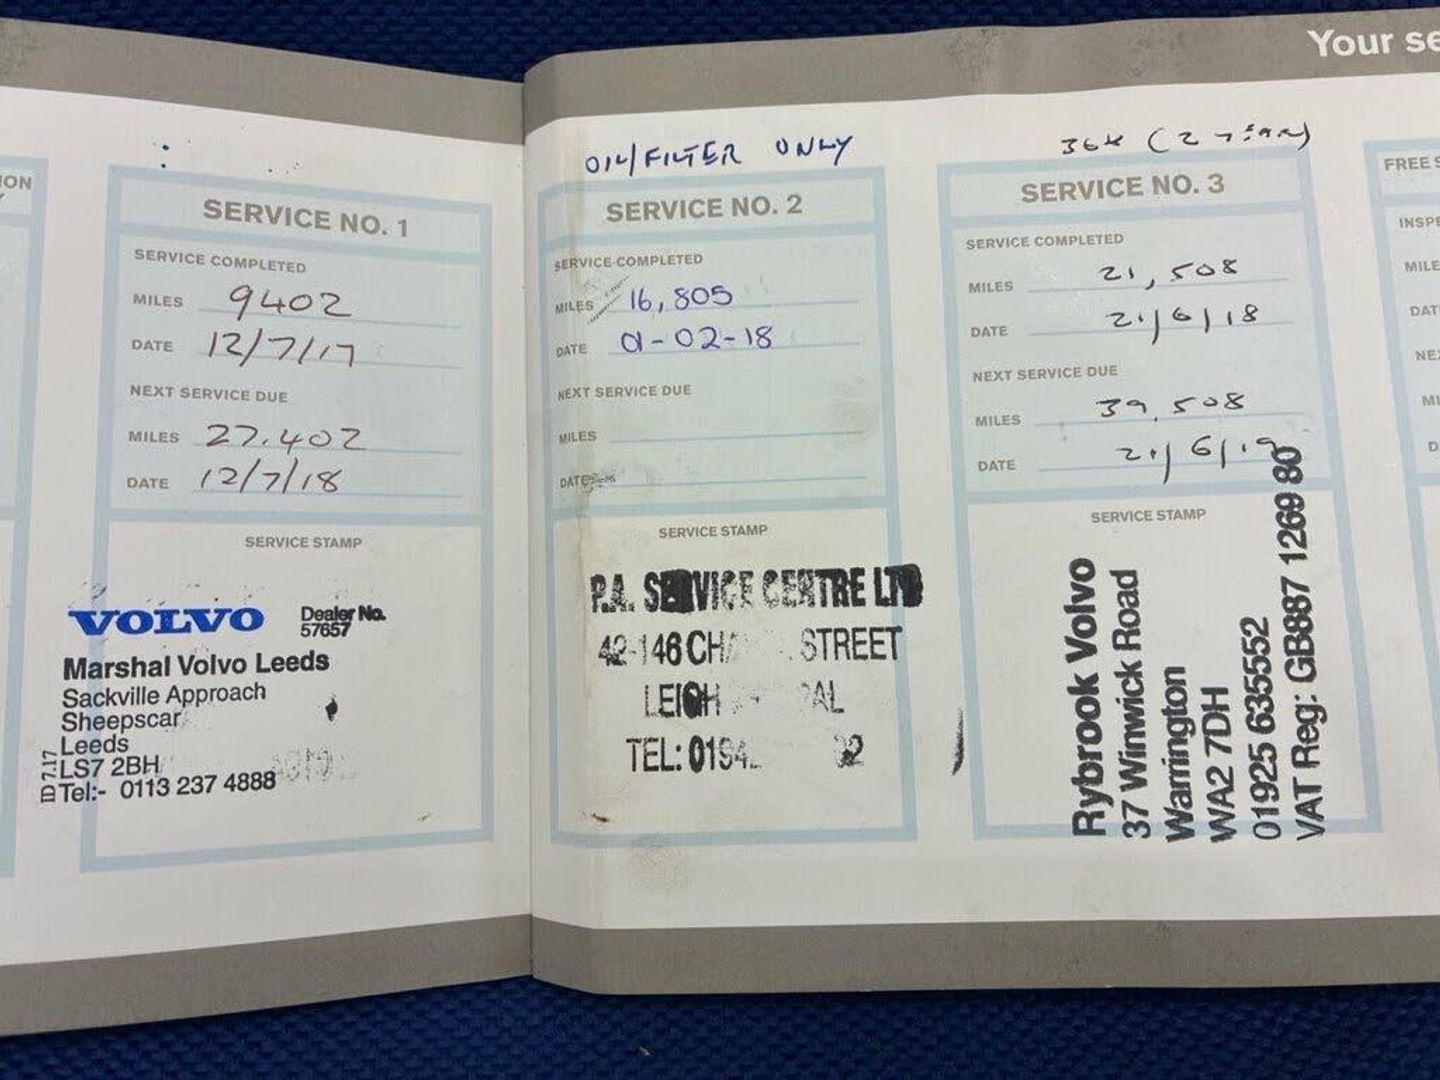 Your se
ION
SERVICE NO. 1
SERVICE COMPLETED
MILES 9402
DATE 12/7/17
NEXT SERVICE DUE
MILES 27.402
DATE 12/7/18
SERVICE STAMP
VOLVO
Dealer No.
57657
Marshal Volvo Leeds
Sackville Approach
Sheepscar
Leeds
LS7 2BH
Tel:- 0113 237 4888
ID 7.17
OIL/FILTER ONLY
SERVICE NO. 2
SERVICE COMPLETED
MILES 16,805
DATE 01-02-18
NEXT SERVICE DUE
MILES
DATE
SERVICE STAMP
P.A. SERVICE CENTRE LTD
STREET
LEIGH
TEL:
36k (2 year)
SERVICE NO. 3
SERVICE COMPLETED
MILES 21,508
DATE 21/6/18
NEXT SERVICE DUE
MILES 39,508
DATE 21/6/19
SERVICE STAMP
Rybrook Volvo
37 Winwick Road
Warrington
WA2 7DH
01925 635552
VAT Reg: GB887 1269 80
FREE S
INSPE
MILE
DAT
NE
MI
D